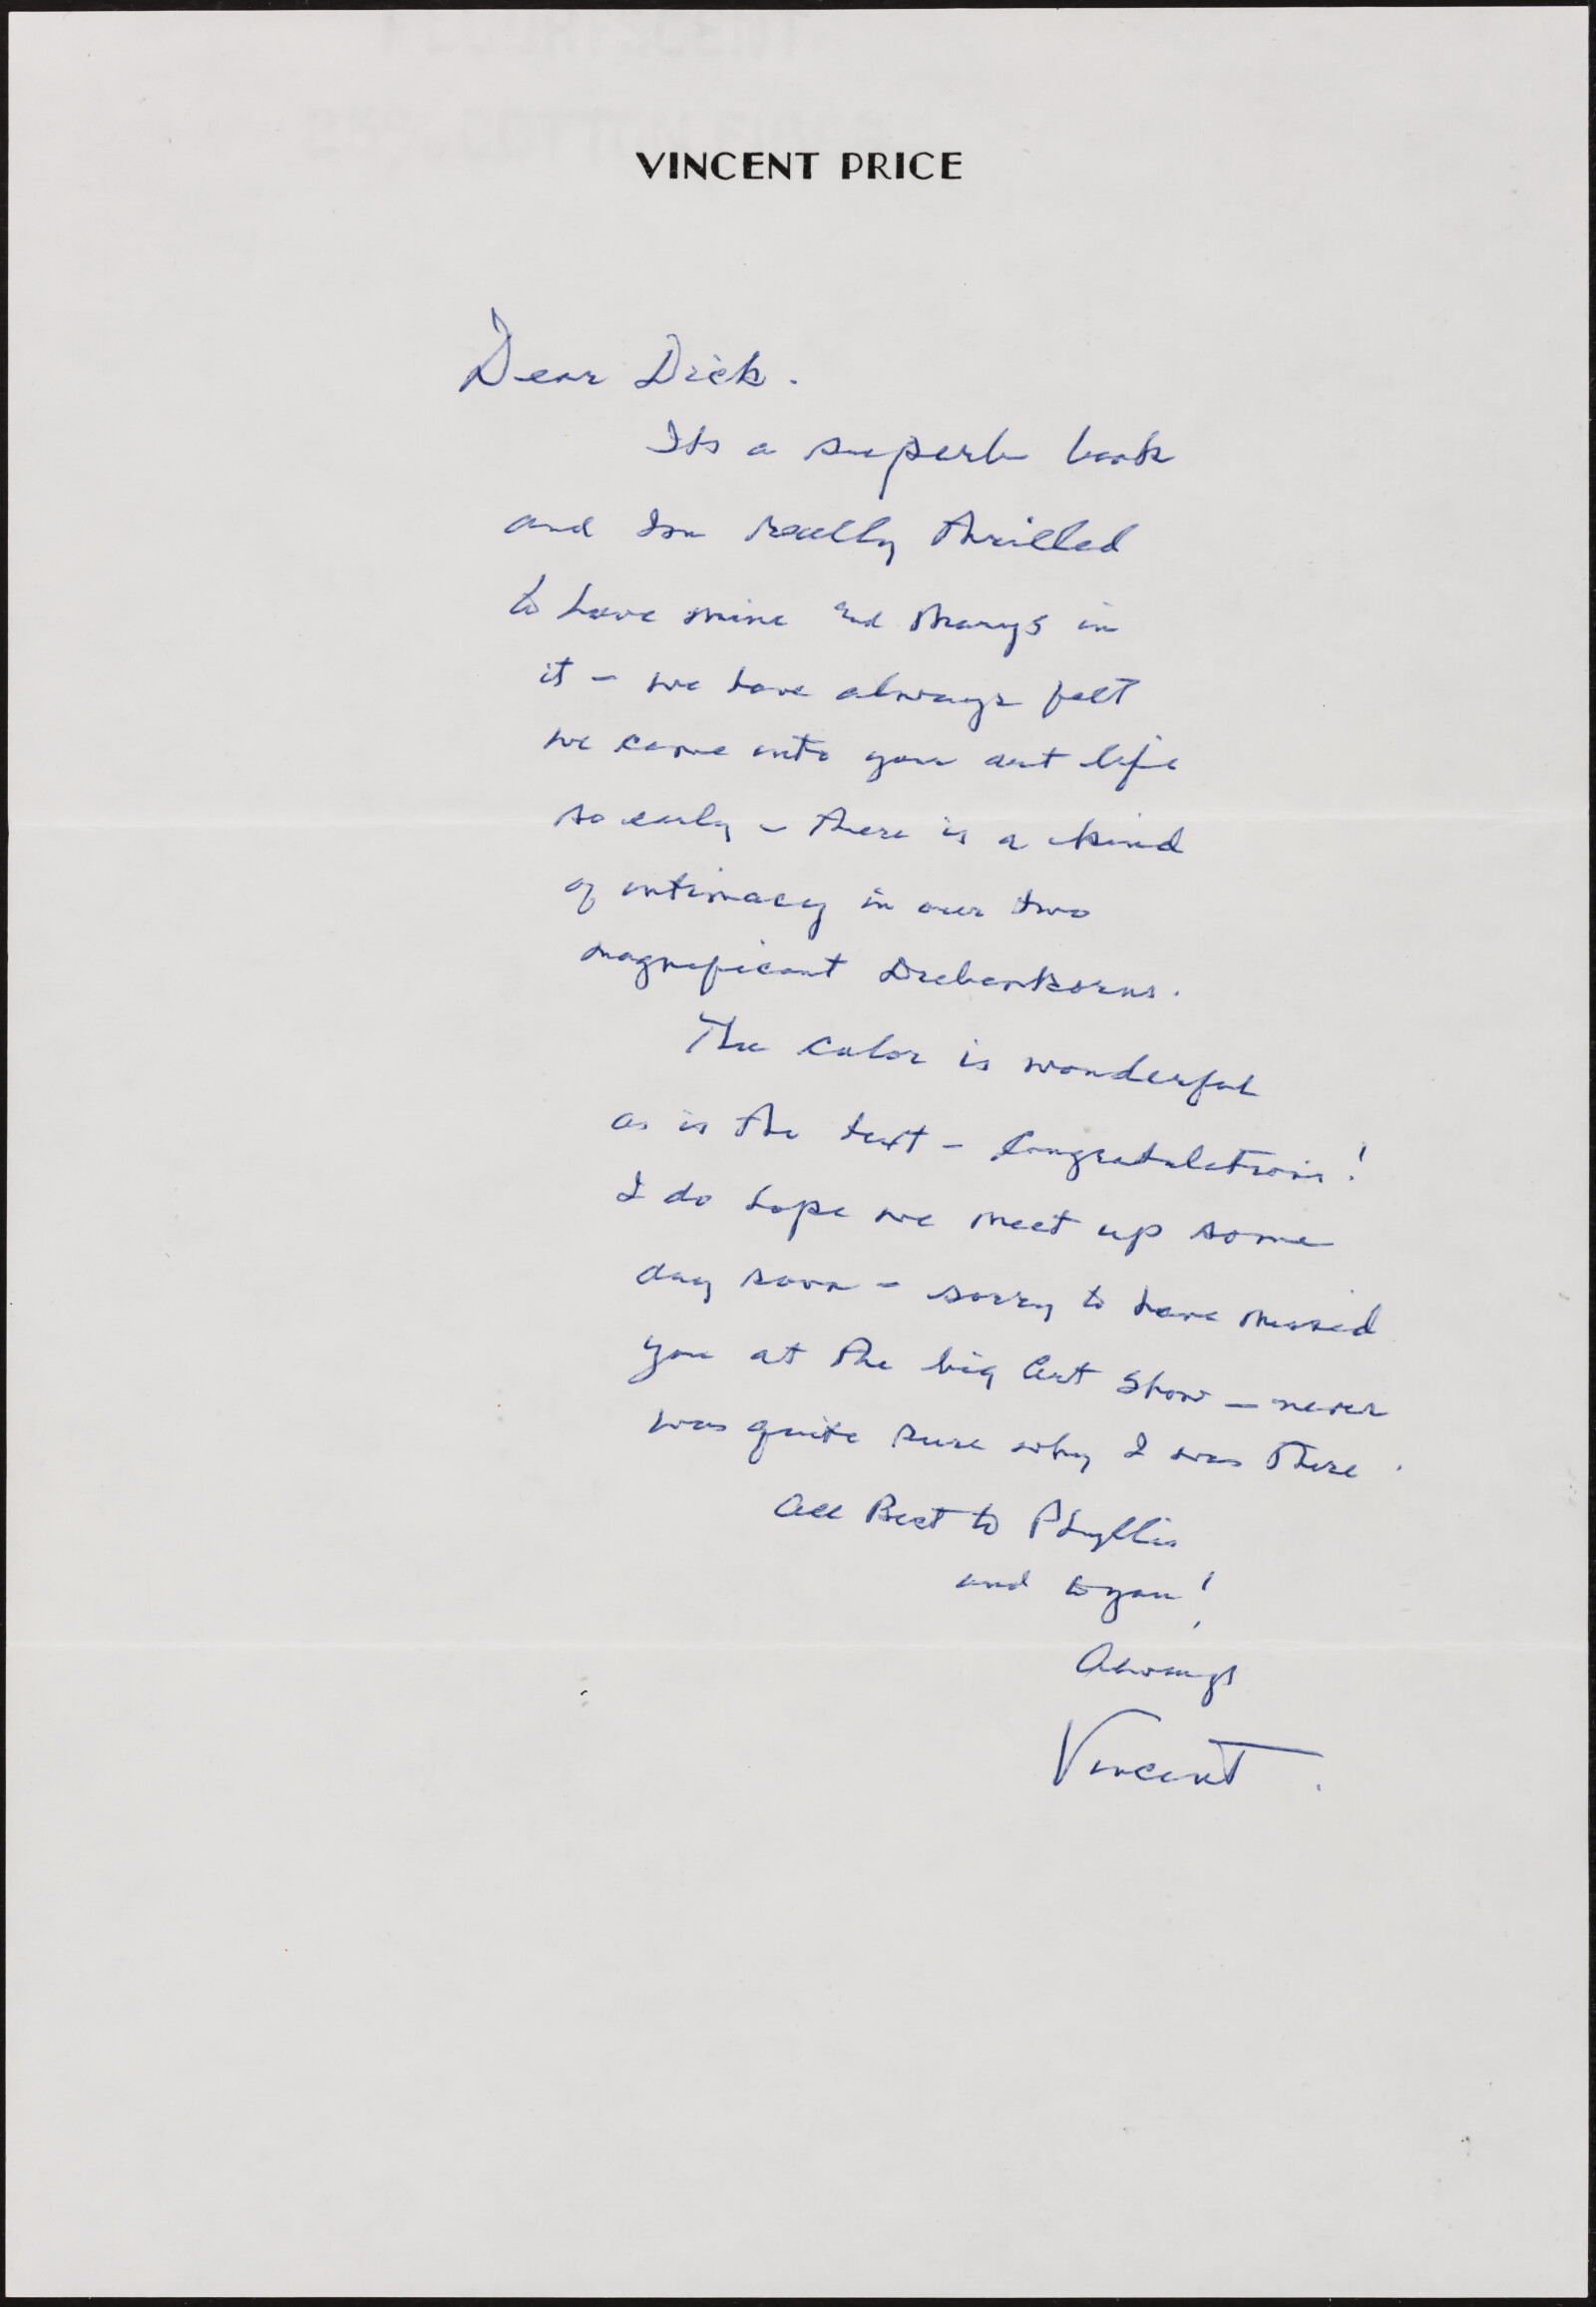 VINCENT PRICE
Dear Dick.
Its a superb book
and Im really thrilled
to have mine and Marys in
it – we have always felt
we came into your art life
so early – there is a kind
of intimacy in our two
magnificant Diebenkorns.
The color is wonderful
as is the text – Congratulations!
I do hope we meet up some
day soon – sorry to have missed
you at the big Art Show – never
was quite sure why I was there.
All Best to Phyllis
and to you!
Always
Vincent.